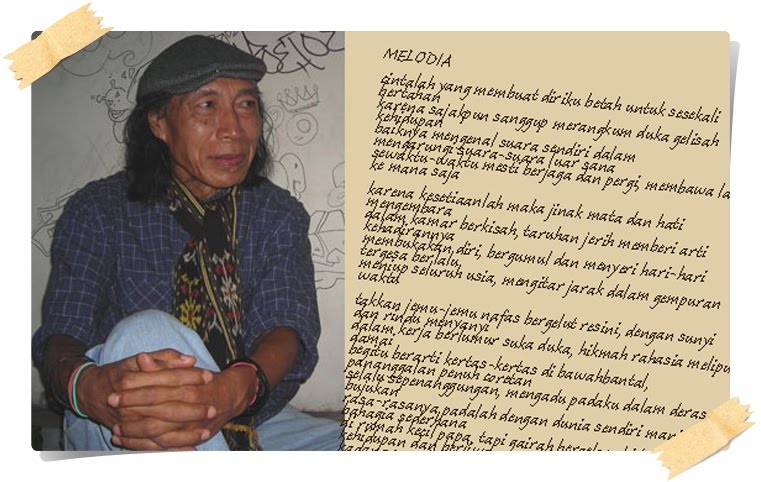 MELODIA
cintalah yang membuat diriku betah untuk sesekali
bertahan
karena sajakpun sanggup merangkum duka gelisah
kehidupan
baiknya mengenal suara sendiri dalam
mengarungi suara-suara luar sana
sewaktu-waktu mesti berjaga dan pergi, membawa la
ke mana saja
karena kesetiaanlah maka jinak mata dan hati
mengembara
dalam kamar berkisah, taruhan jerih memberi arti
kehadirannya
membukakan diri, bergumul dan menyeri hari-hari
tergesa berlalu,
meniup seluruh usia, mengitar jarak dalam gempuran
waktu
takkan jemu-jemu nafas bergelut resini, dengan sunyi
dan rindu menyanyi
dalam kerja berlumur suka duka, hikmah rahasia melipu
damai
begitu berarti kertas-kertas di bawahbantal,
pananggalan penuh coretan
selalu sepenanggungan, mengadu padaku dalam deras
bujukan
rasa-rasanya padalah dengan dunia sendiri
bahagia sederhana
di rumah kecil papa, tapi gairah
kehidupan dan